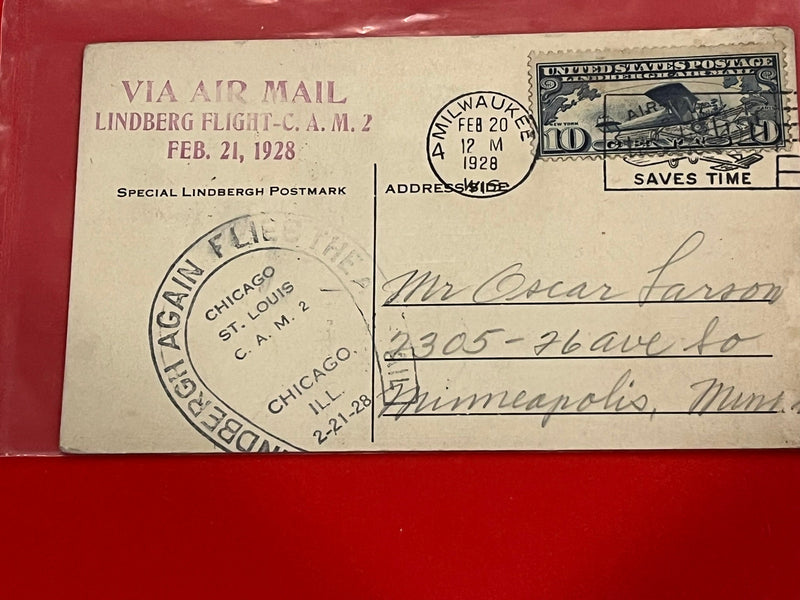 VIA AIR MAIL
LINDBERG FLIGHT-C. A. M. 2
FEB. 21, 1928
SPECIAL LINDBERGH POSTMARK
LINDBERGH AGAIN FLIES THE AIR MAIL
CHICAGO
ST. LOUIS
C. A. M. 2
CHICAGO,
ILL.
2-21-28
MILWAUKEE
4
FEB 20
12 M
1928
WIS
UNITED STATES POSTAGE
LINDBERGH AIR MAIL
NEW YORK
AIR MAIL
10
SAVES TIME
ADDRESS SIDE
Mr Oscar Larson
2305-26 ave So
Minneapolis, Minn